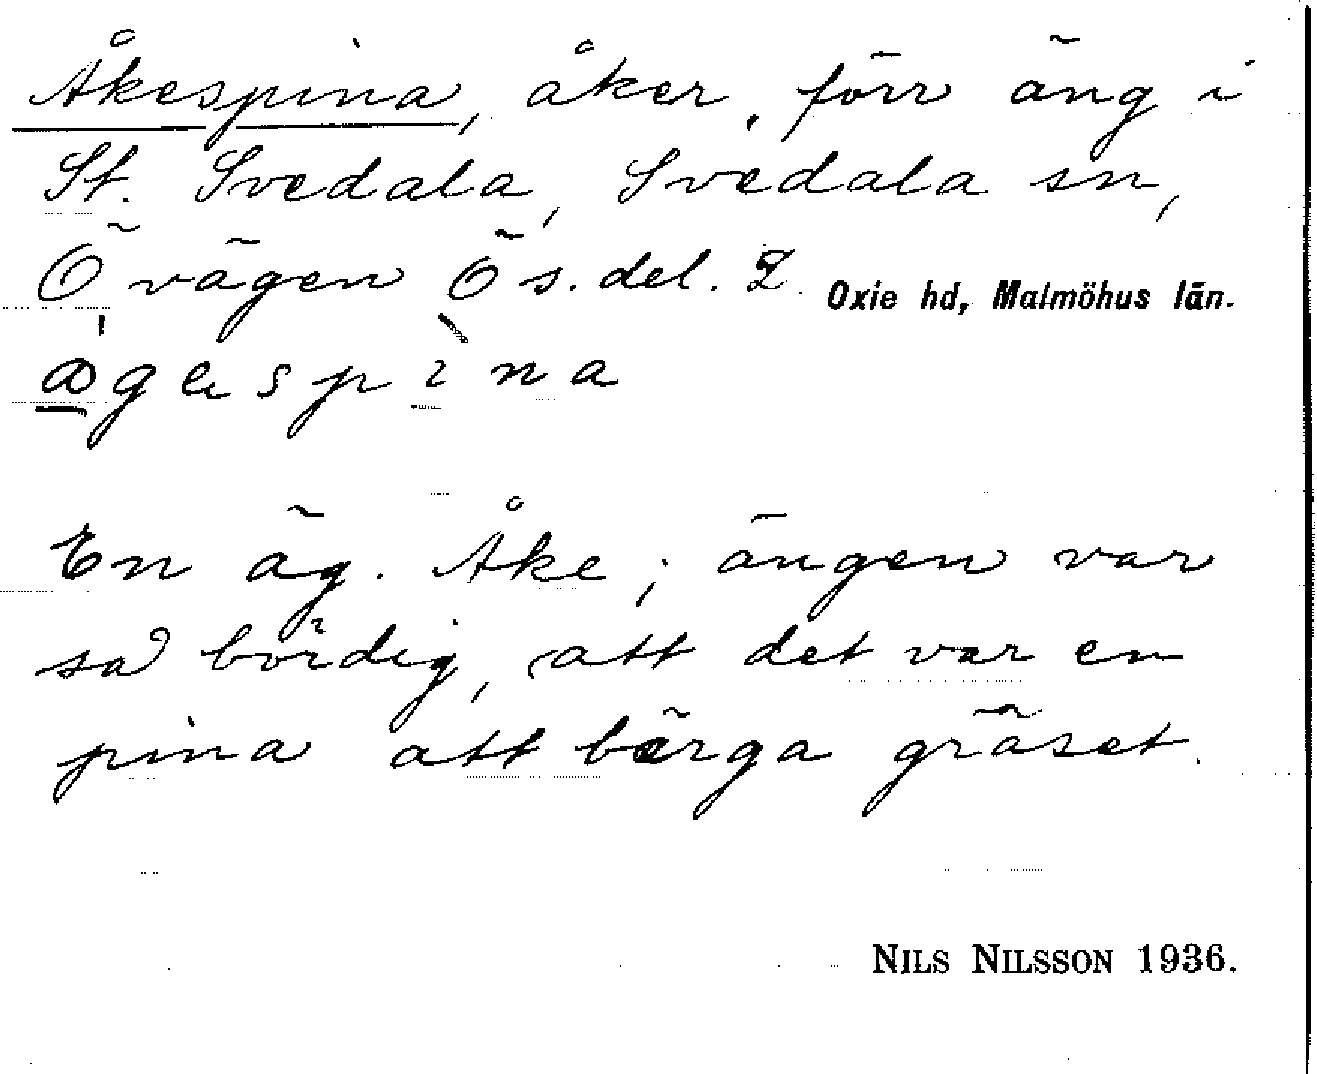 Åkespina, åker, förr äng i
St. Svedala, Svedala sn,
Ö vägen Ö s. del. Oxie hd, Malmöhus län.
En äg. Åke; ängen var
så bördig, att det var en
pina att bärga gräset.
NILS NILSSON 1936.